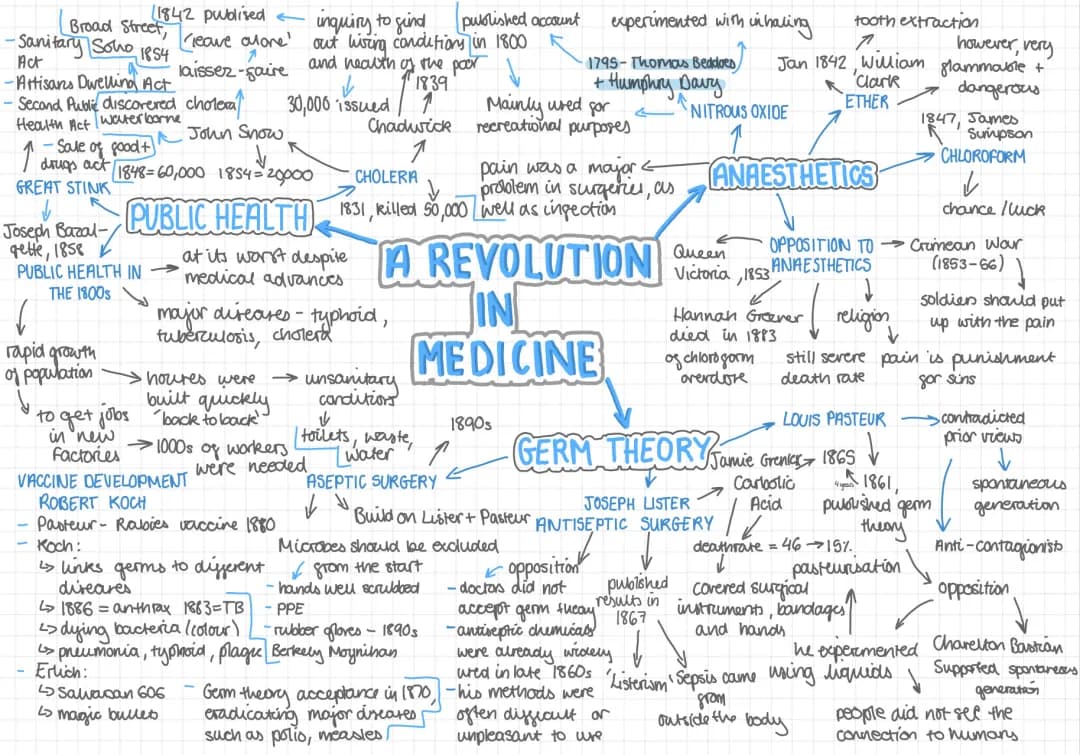 A REVOLUTION
IN
MEDICINE
PUBLIC HEALTH
GREAT STINK
- Sanitary
Act
- Artisans Dwelling Act
- Second Public
Health Act
- Sale of food +
drugs act
Joseph Bazal-
gette, 1858
PUBLIC HEALTH IN
THE 1800s
at its worst despite
medical advances
major diseases - typhoid,
tuberculosis, cholera
rapid growth
of population
houses were
built quickly
'back to back'
unsanitary
conditions
toilets, waste,
water
to get jobs
in new
factories
1000s of workers
were needed
CHOLERA
1831, killed 50,000
1848=60,000 1854=20,000
John Snow
Broad Street,
Soho 1854
discovered cholera
waterborne
laissez-faire
'leave alone'
1842 publised
inquiry to find
out living conditions
and health of the poor
1839
30,000 issued
Chadwick
ANAESTHETICS
pain was a major
problem in surgeries, as
well as infection
NITROUS OXIDE
1795 - Thomas Beddoes
+ Humphry Davy
published account
in 1800
experimented with inhaling
Mainly used for
recreational purposes
ETHER
Jan 1842, William
Clark
tooth extraction
however, very
flammable +
dangerous
CHLOROFORM
1847, James
Simpson
chance / luck
OPPOSITION TO
ANAESTHETICS
Queen
Victoria, 1853
Hannah Greener
died in 1883
of chloroform
overdose
still severe
death rate
religion
pain is punishment
for sins
Crimean War
(1853-56)
soldiers should put
up with the pain
GERM THEORY
LOUIS PASTEUR
contradicted
prior views
spontaneous
generation
Anti-contagionists
1861,
published germ
theory
4 years
opposition
Charelton Bastian
Supported spontaneous
generation
people did not see the
connection to humans
he experimented
using liquids
pasteurisation
JOSEPH LISTER
ANTISEPTIC SURGERY
Carbolic
Acid
Jamie Grenles
1865
deathrate = 46 → 15%
covered surgical
instruments, bandages
and hands
published
results in
1867
'Listerism'
Sepsis came
from
outside the body
opposition
- doctors did not
accept germ theory
- antiseptic chemicals
were already widely
used in late 1860s
- his methods were
often difficult or
unpleasant to use
ASEPTIC SURGERY
1890s
Build on Lister + Pasteur
Microbes should be excluded
from the start
- hands well scrubbed
- PPE
- rubber gloves - 1890s
Berkely Moynihan
VACCINE DEVELOPMENT
ROBERT KOCH
- Pasteur - Rabies vaccine 1880
- Koch:
↳ links germs to different
diseases
↳ 1886 = anthrax 1883=TB
↳ dying bacteria (colour)
↳ pneumonia, typhoid, plague
- Erlich:
↳ Salvarsan 606
↳ magic bullets
- Germ theory acceptance in 1870,
eradicating major diseases
such as polio, measles